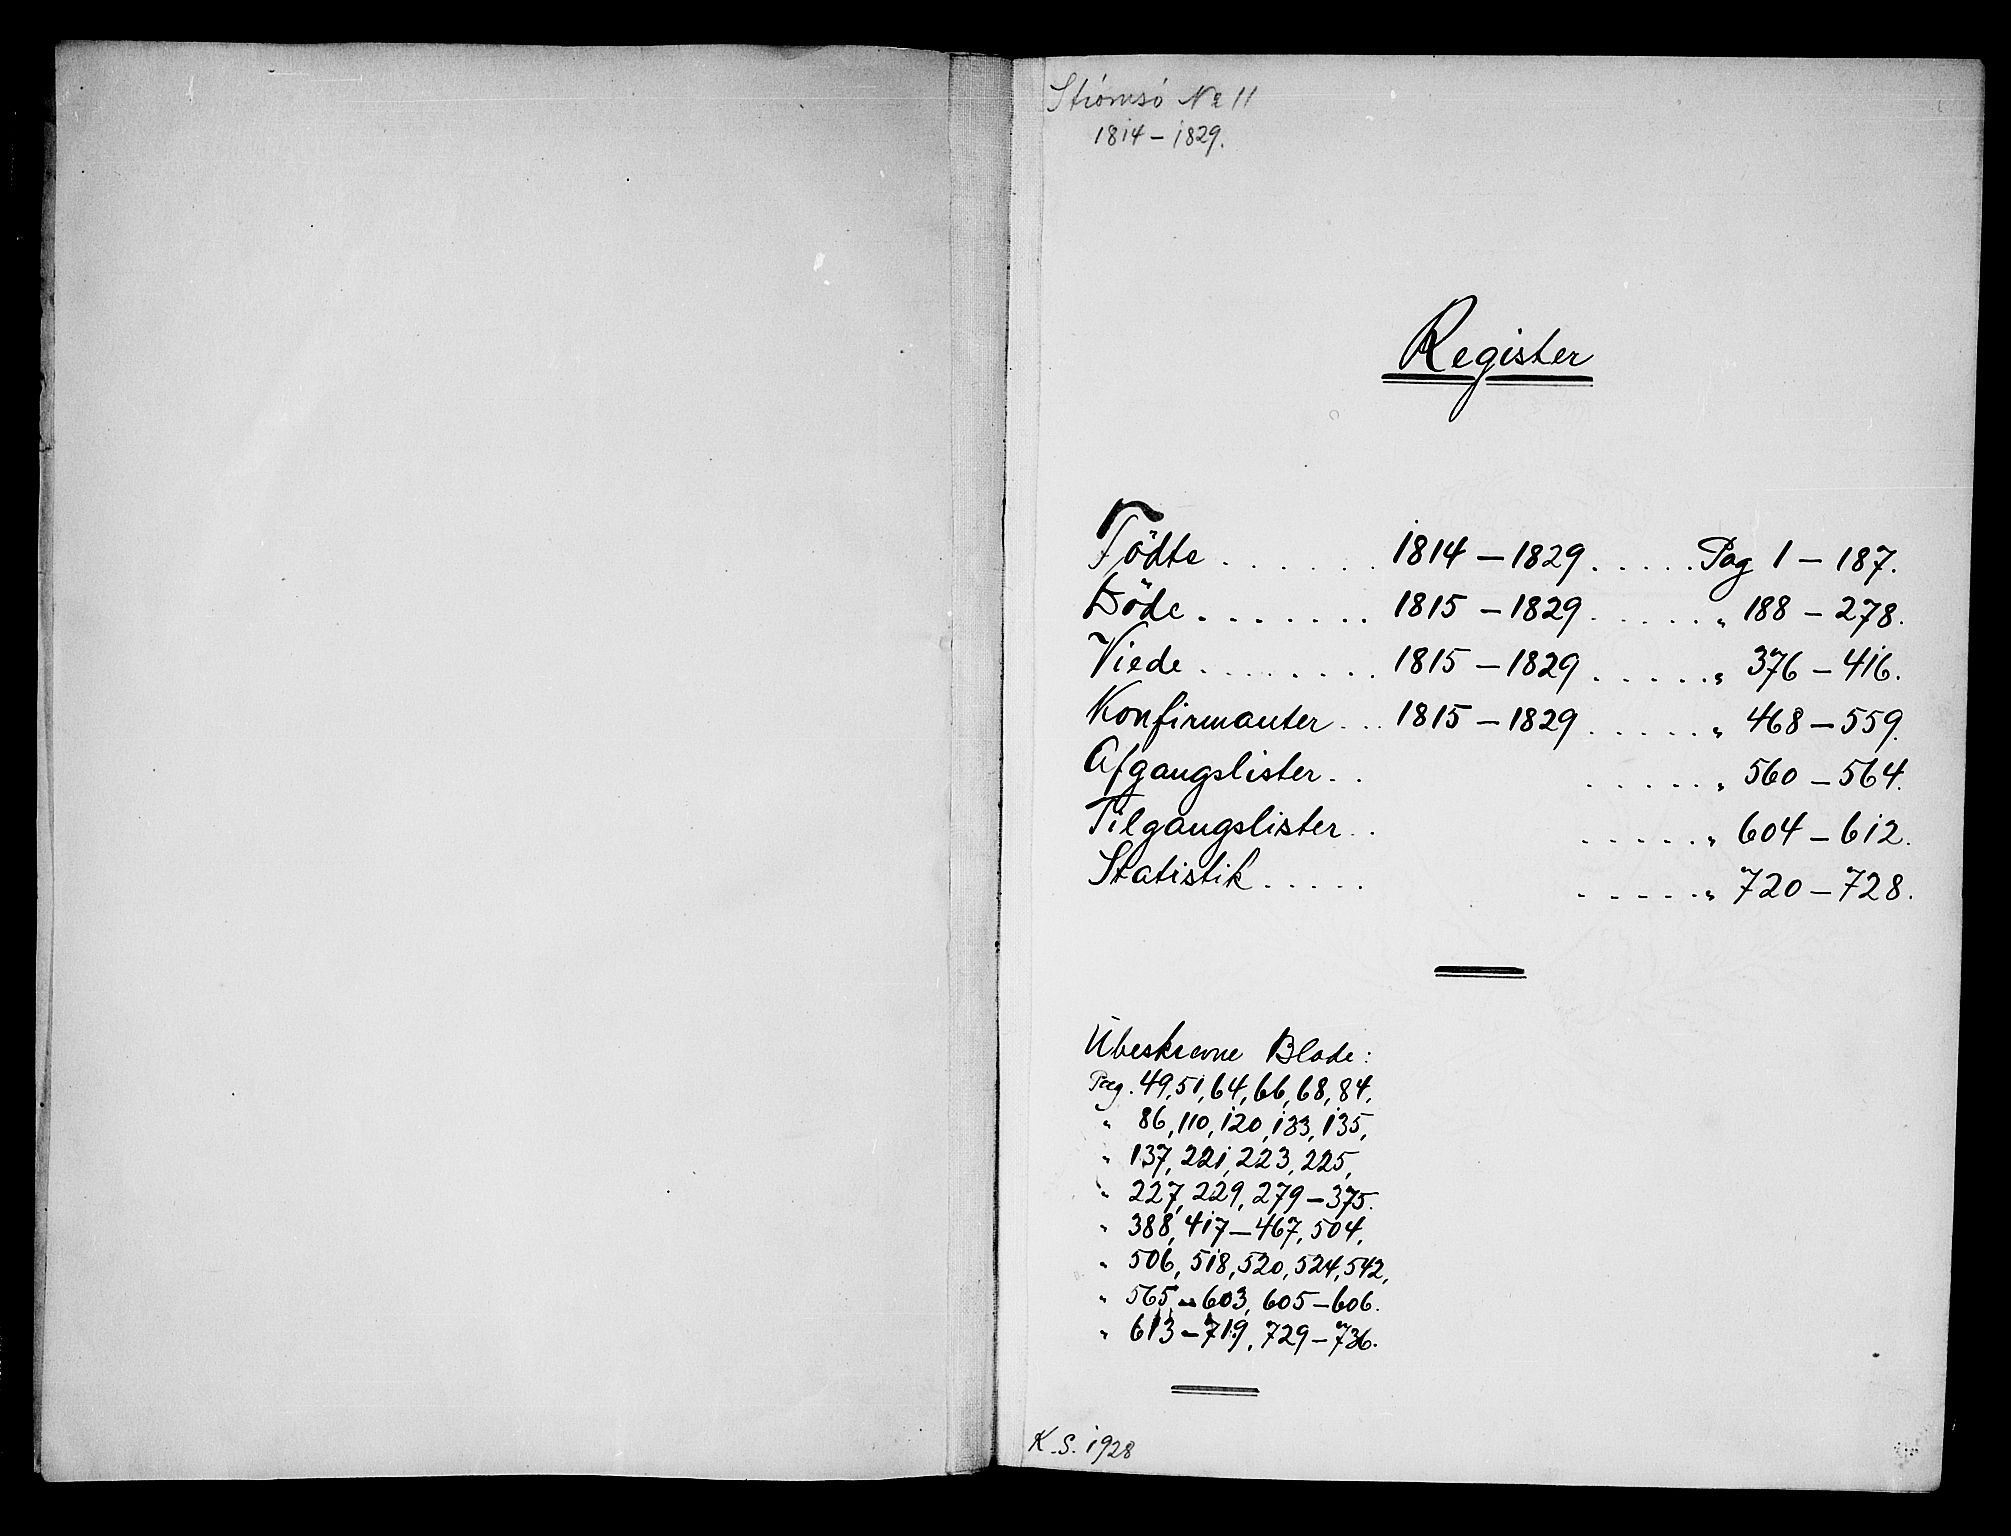 Strömsö No 11
1814 - 1829.
Register
Födte . . . . . . 1814 - 1829 . . . . . Pag 1 - 187.
Döde . . . . . . . 1815 - 1829 . . . . . " 188 - 278.
Viede . . . . . . . . 1815 - 1829 . . . . . " 376 - 416.
Konfirmanter . . . 1815 - 1829 . . . . . " 468 - 559.
Afgangslister . . . . . . . " 560 - 564.
Tilgangslister . . . . . . . " 604 - 612.
Statistik . . . . . . . . . . " 720 - 728.
Ubeskrevne Blade:
Pag. 49, 51, 64, 66, 68, 84,
" 86, 110, 120, 133, 135,
" 137, 221, 223, 225,
" 227, 229, 279 - 375.
" 388, 417 - 467, 504,
" 506, 518, 520, 524, 542,
" 565 - 603, 605 - 606.
" 613 - 719, 729 - 736.
K. S. 1928